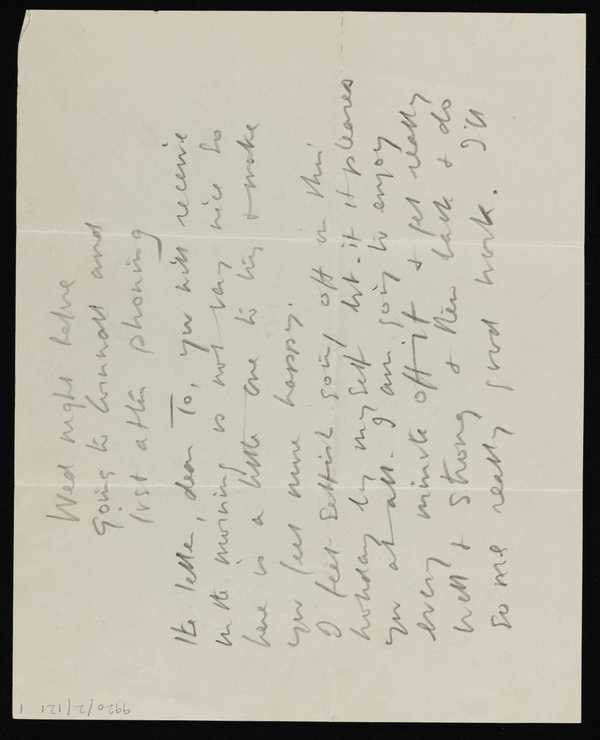 Wed night before
going to Cornwall and
just after phoning
The letter, dear To, you will receive
in the morning is not very nice so
here is a little one to try & make
you feel more happy.
I feel selfish going off on this
holiday by myself but if it pleases
you at all - I am going to enjoy
every minute off it & get really
well & strong & then back & do
some really good work. I'll
9920/2/121 1